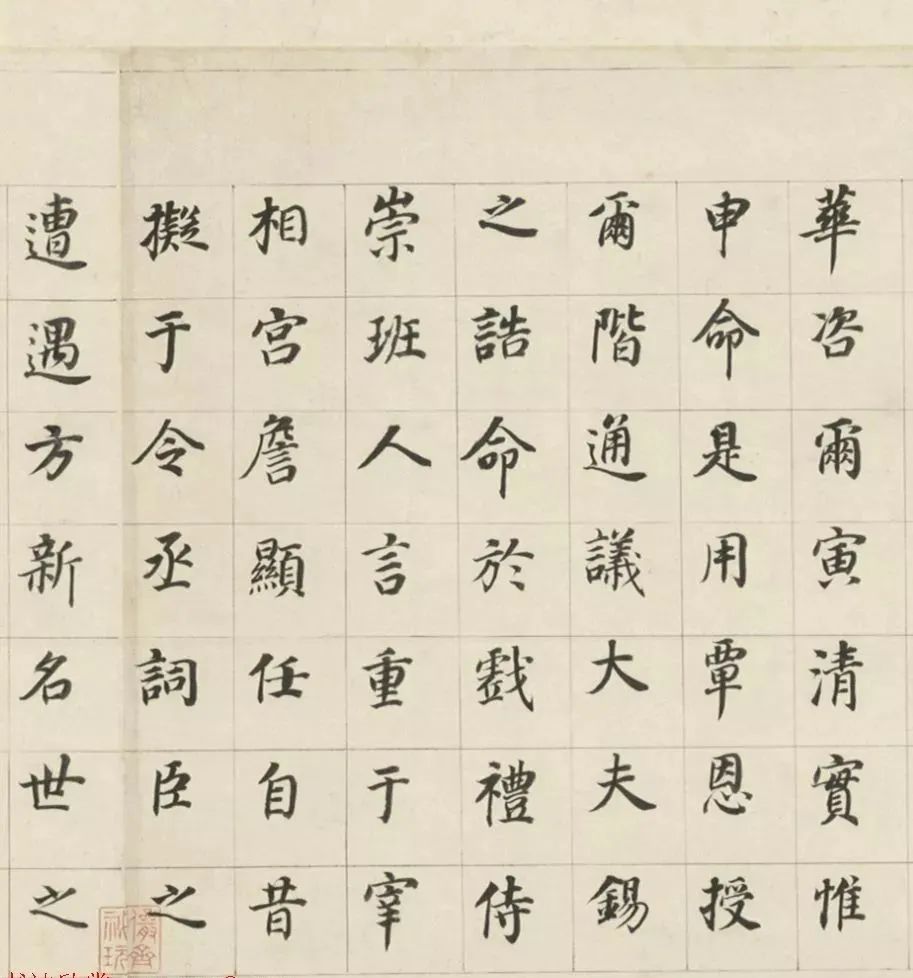 華咨爾寅清實惟
申命是用覃恩授
爾階通議大夫錫
之誥命於戲禮侍
崇班人言重于宰
相宮詹顯任自昔
擬于令丞詞臣之
遭遇方新名世之